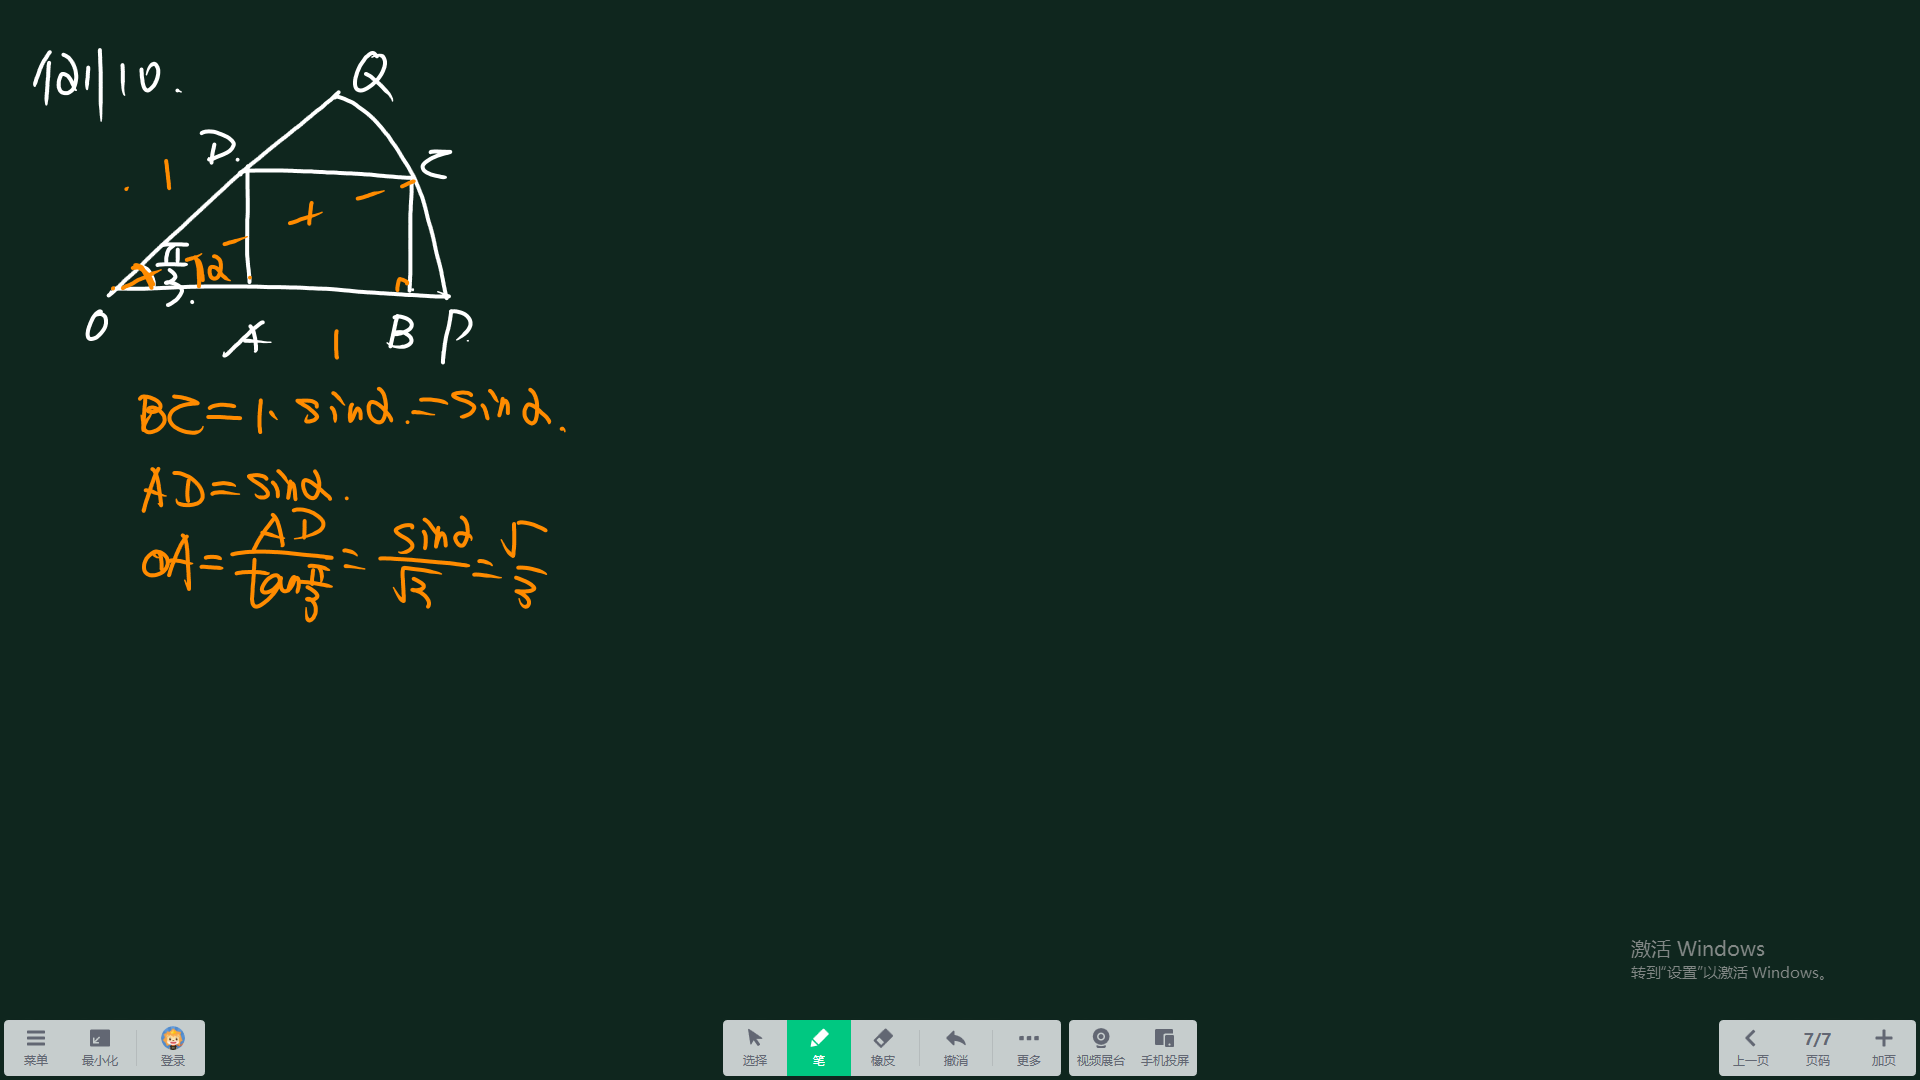 121|10.
Q
D.
C
1
π/3
α
O
A
1
B
P.
BC=1·sinα.=sinα.
AD=sinα.
OA=AD/tanπ/3=sinα/√3=√/3
激活 Windows
转到“设置”以激活 Windows。
菜单 最小化 登录 选择 笔 橡皮 撤消 更多 视频展台 手机投屏 上一页 7/7 页码 加页